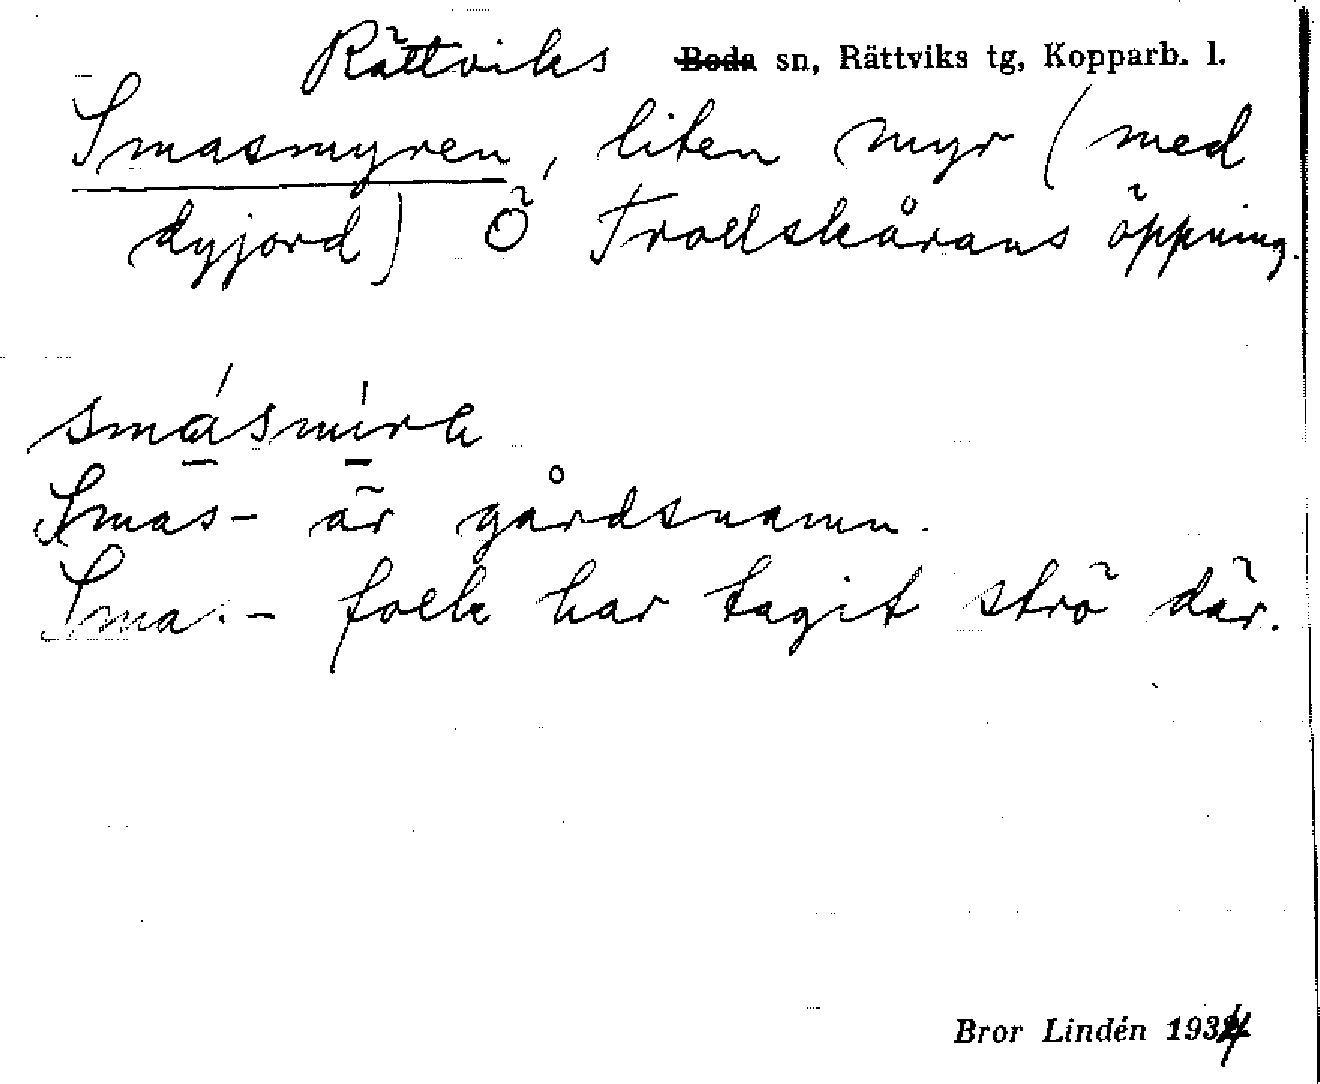 Rättviks Boda sn, Rättviks tg, Kopparb. l.
Smasmyren, liten myr (med
dyjord) Ö Troelskårans öppning.
smásmírh
Smas- är gårdsnamn.
Smas- folk har tagit strö där.
Bror Lindén 1934